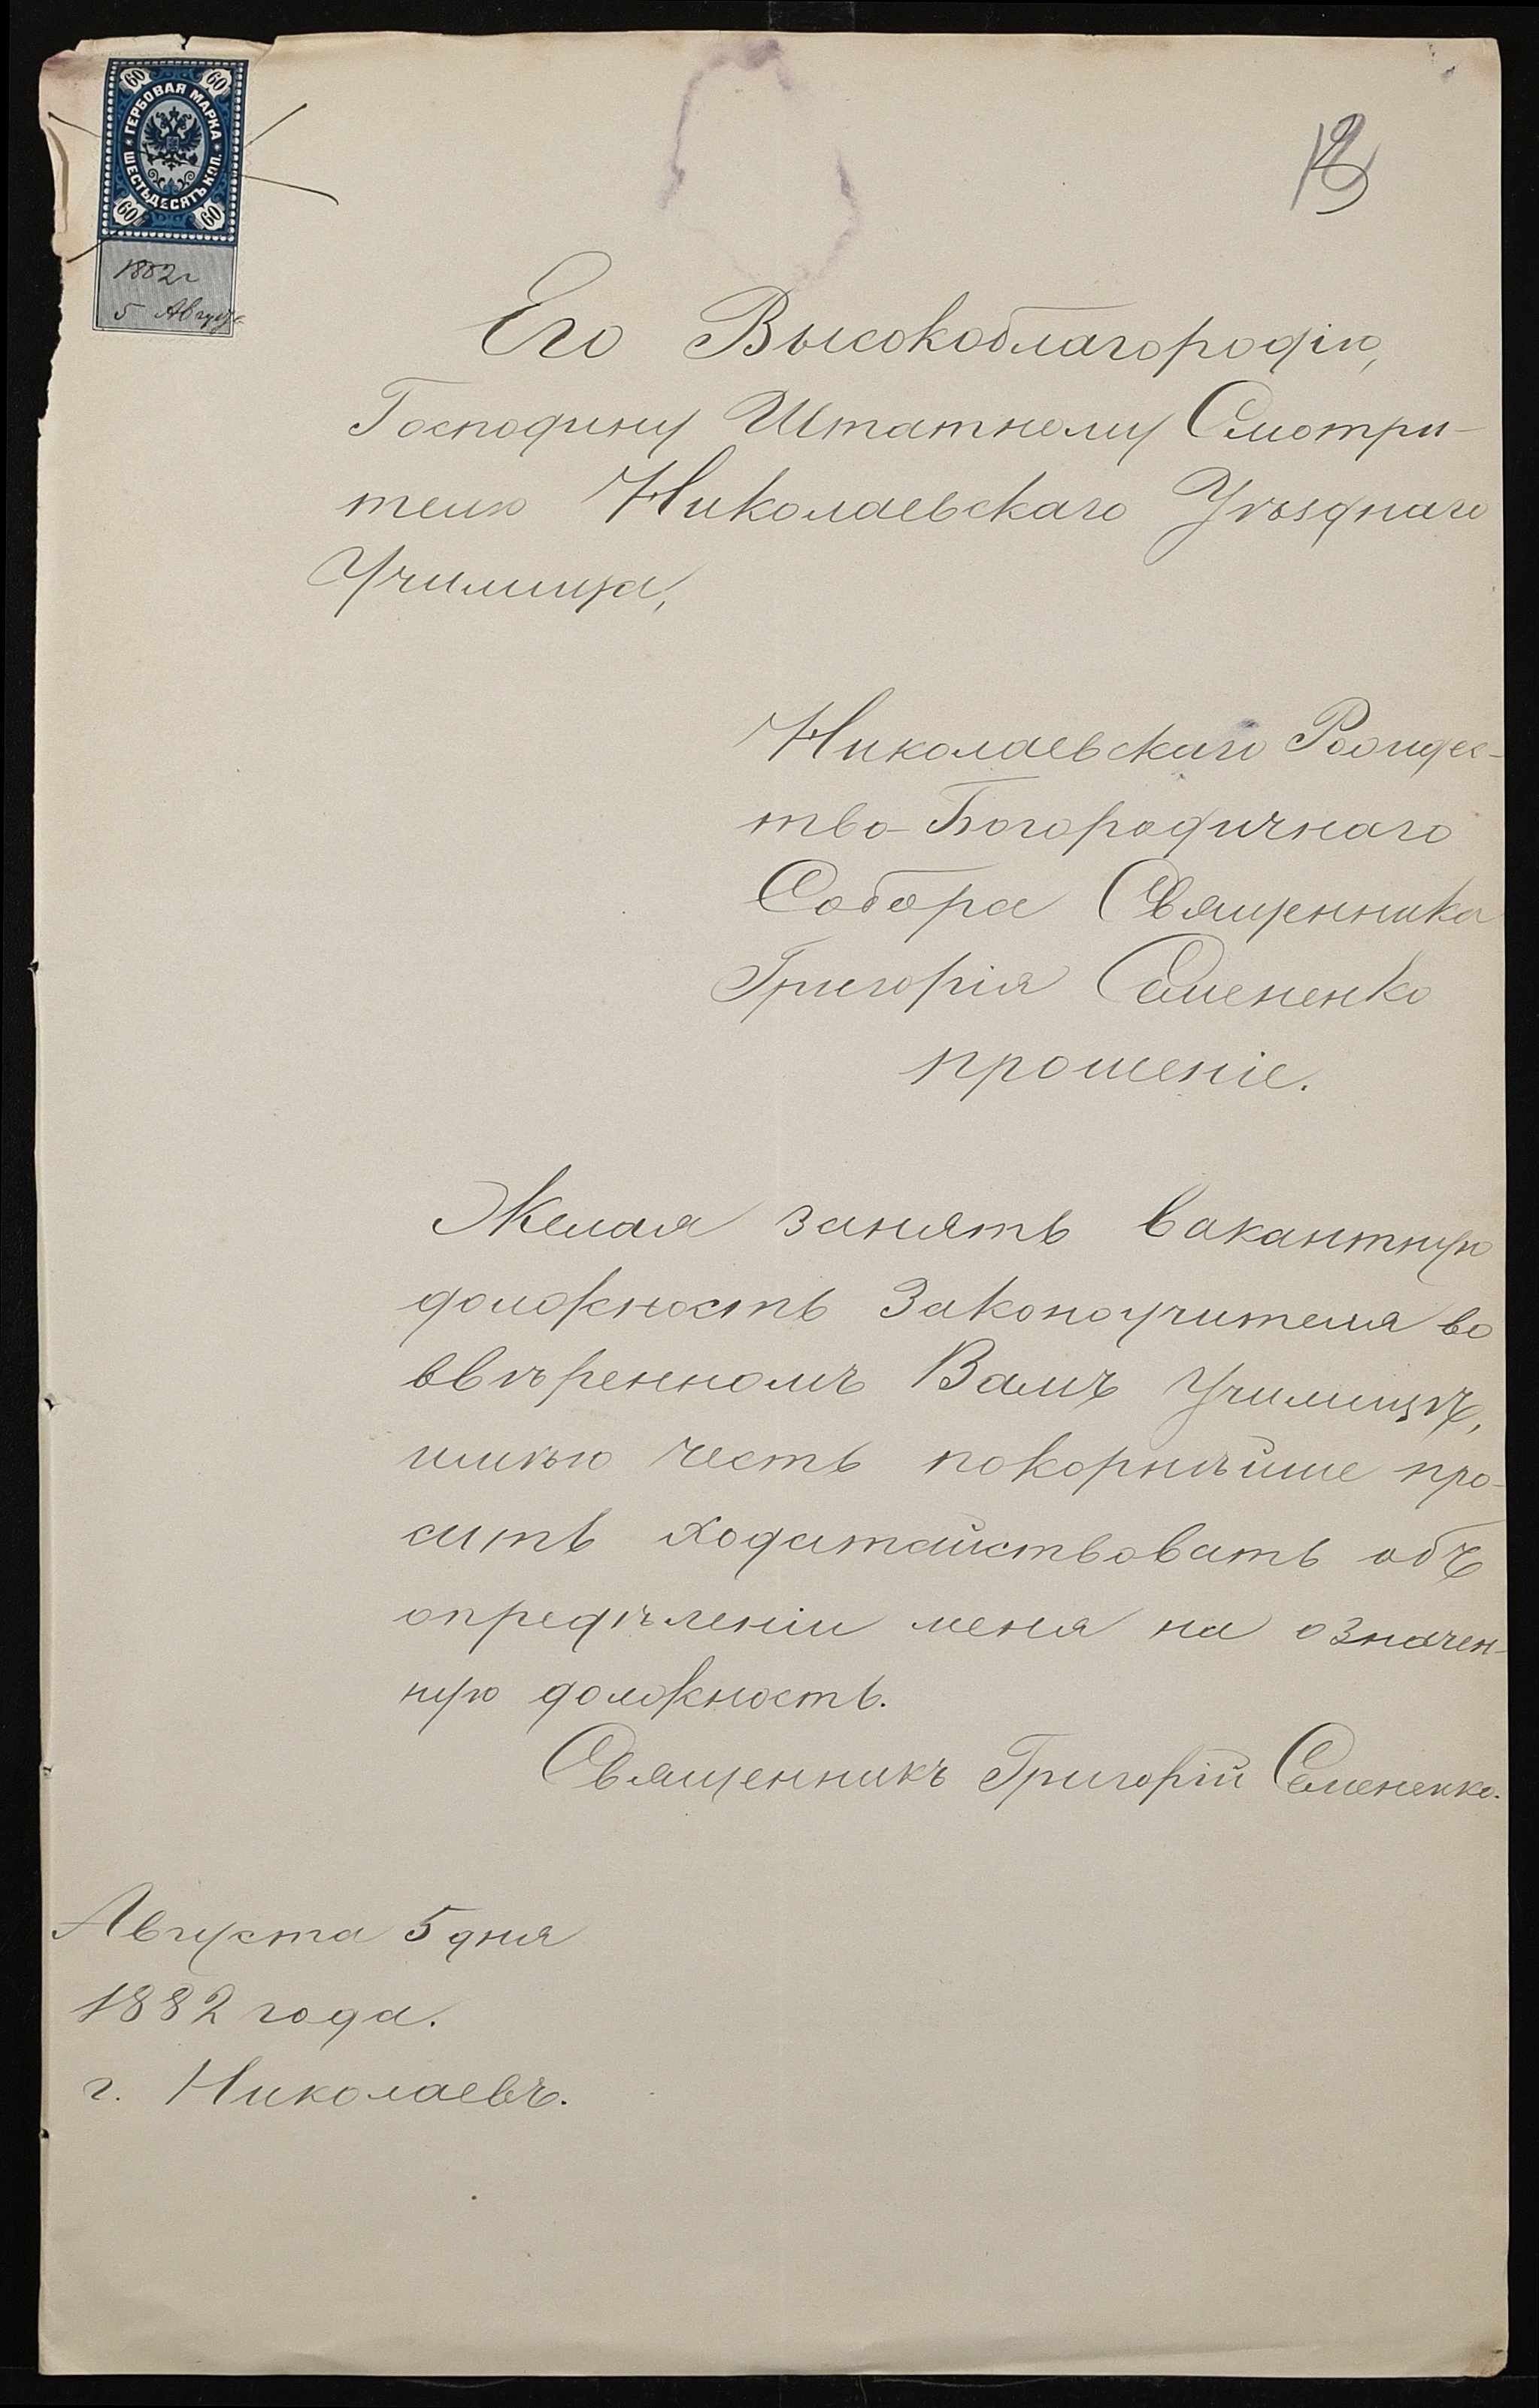 60 60
ГЕРБОВАЯ МАРКА
ШЕСТЬДЕСЯТЪ КОП.
60 60
1882 г
5 Августа
Его Высокоблагородію,
Господину Штатному Смотри-
телю Николаевскаго Уѣзднаго
Училища,
Николаевскаго Рождес-
тво-Богородичнаго
Собора Священника
Григорія Семененко
прошеніе.
Желая занять вакантную
должность Законоучителя во
ввѣренномъ Вамъ Училищѣ,
имѣю честь покорнѣйше про-
сить ходатайствовать объ
опредѣленіи меня на означен-
ную должность.
Священникъ Григорій Семененко.
Августа 5 дня
1882 года.
г. Николаевъ.